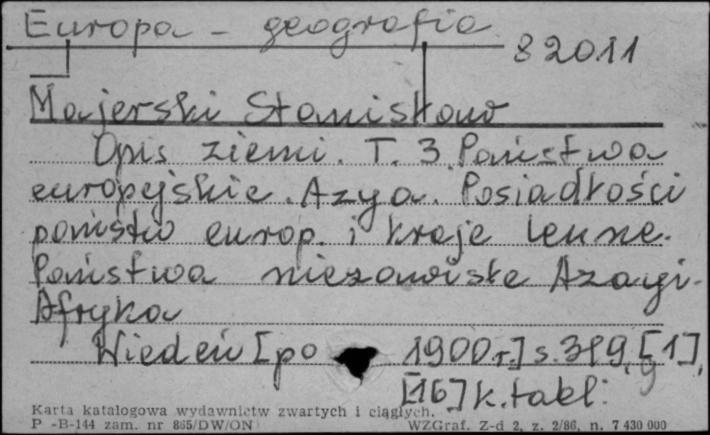 Europa - geografia
8 2011
Majerski Stanisław
Opis ziemi. T. 3 Państwa
europejskie. Azya. Posiadłości
państw europ. i kraje lenne.
Państwa niezawisłe Azayi.
Afryka
Wiedeń [po 1900 r.] s. 319, [1],
[16] k. tabl.
Karta katalogowa wydawnictw zwartych i ciągłych.
P -B-144 zam. nr 865/DW/ON WZGraf. Z-d 2, z. 2/86, n. 7 430 000